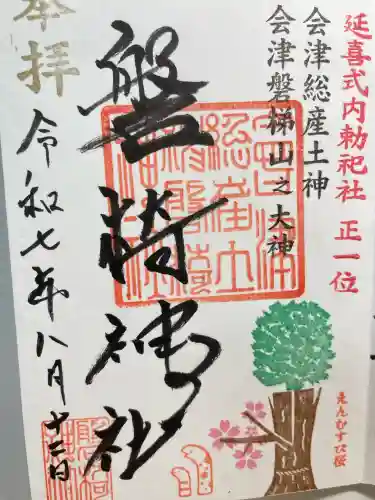 延喜式内勅祀社 正一位
会津総産土神
会津磐梯山之大神
磐椅神社
奉拝
令和七年八月十二日
えんむすび桜